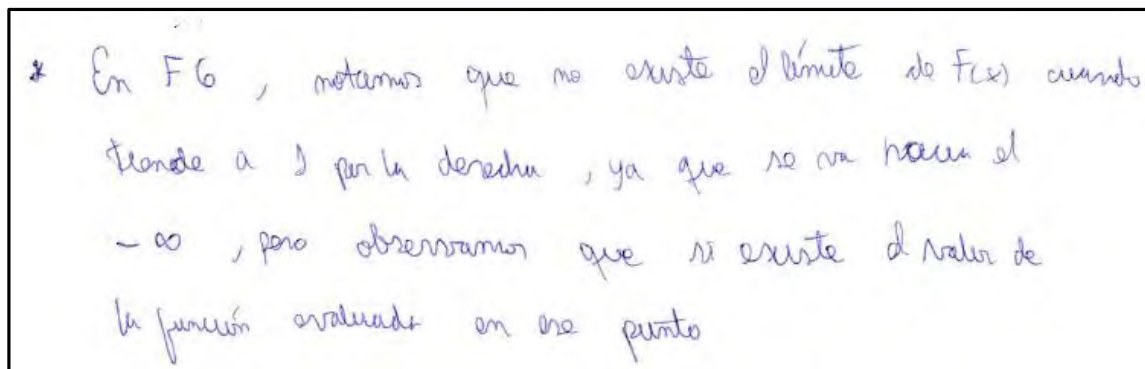 * En F6, notamos que no existe el límite de F(x) cuando
tiende a 1 por la derecha, ya que se va hacia el
- ∞, pero observamos que si existe el valor de
la función evaluada en ese punto